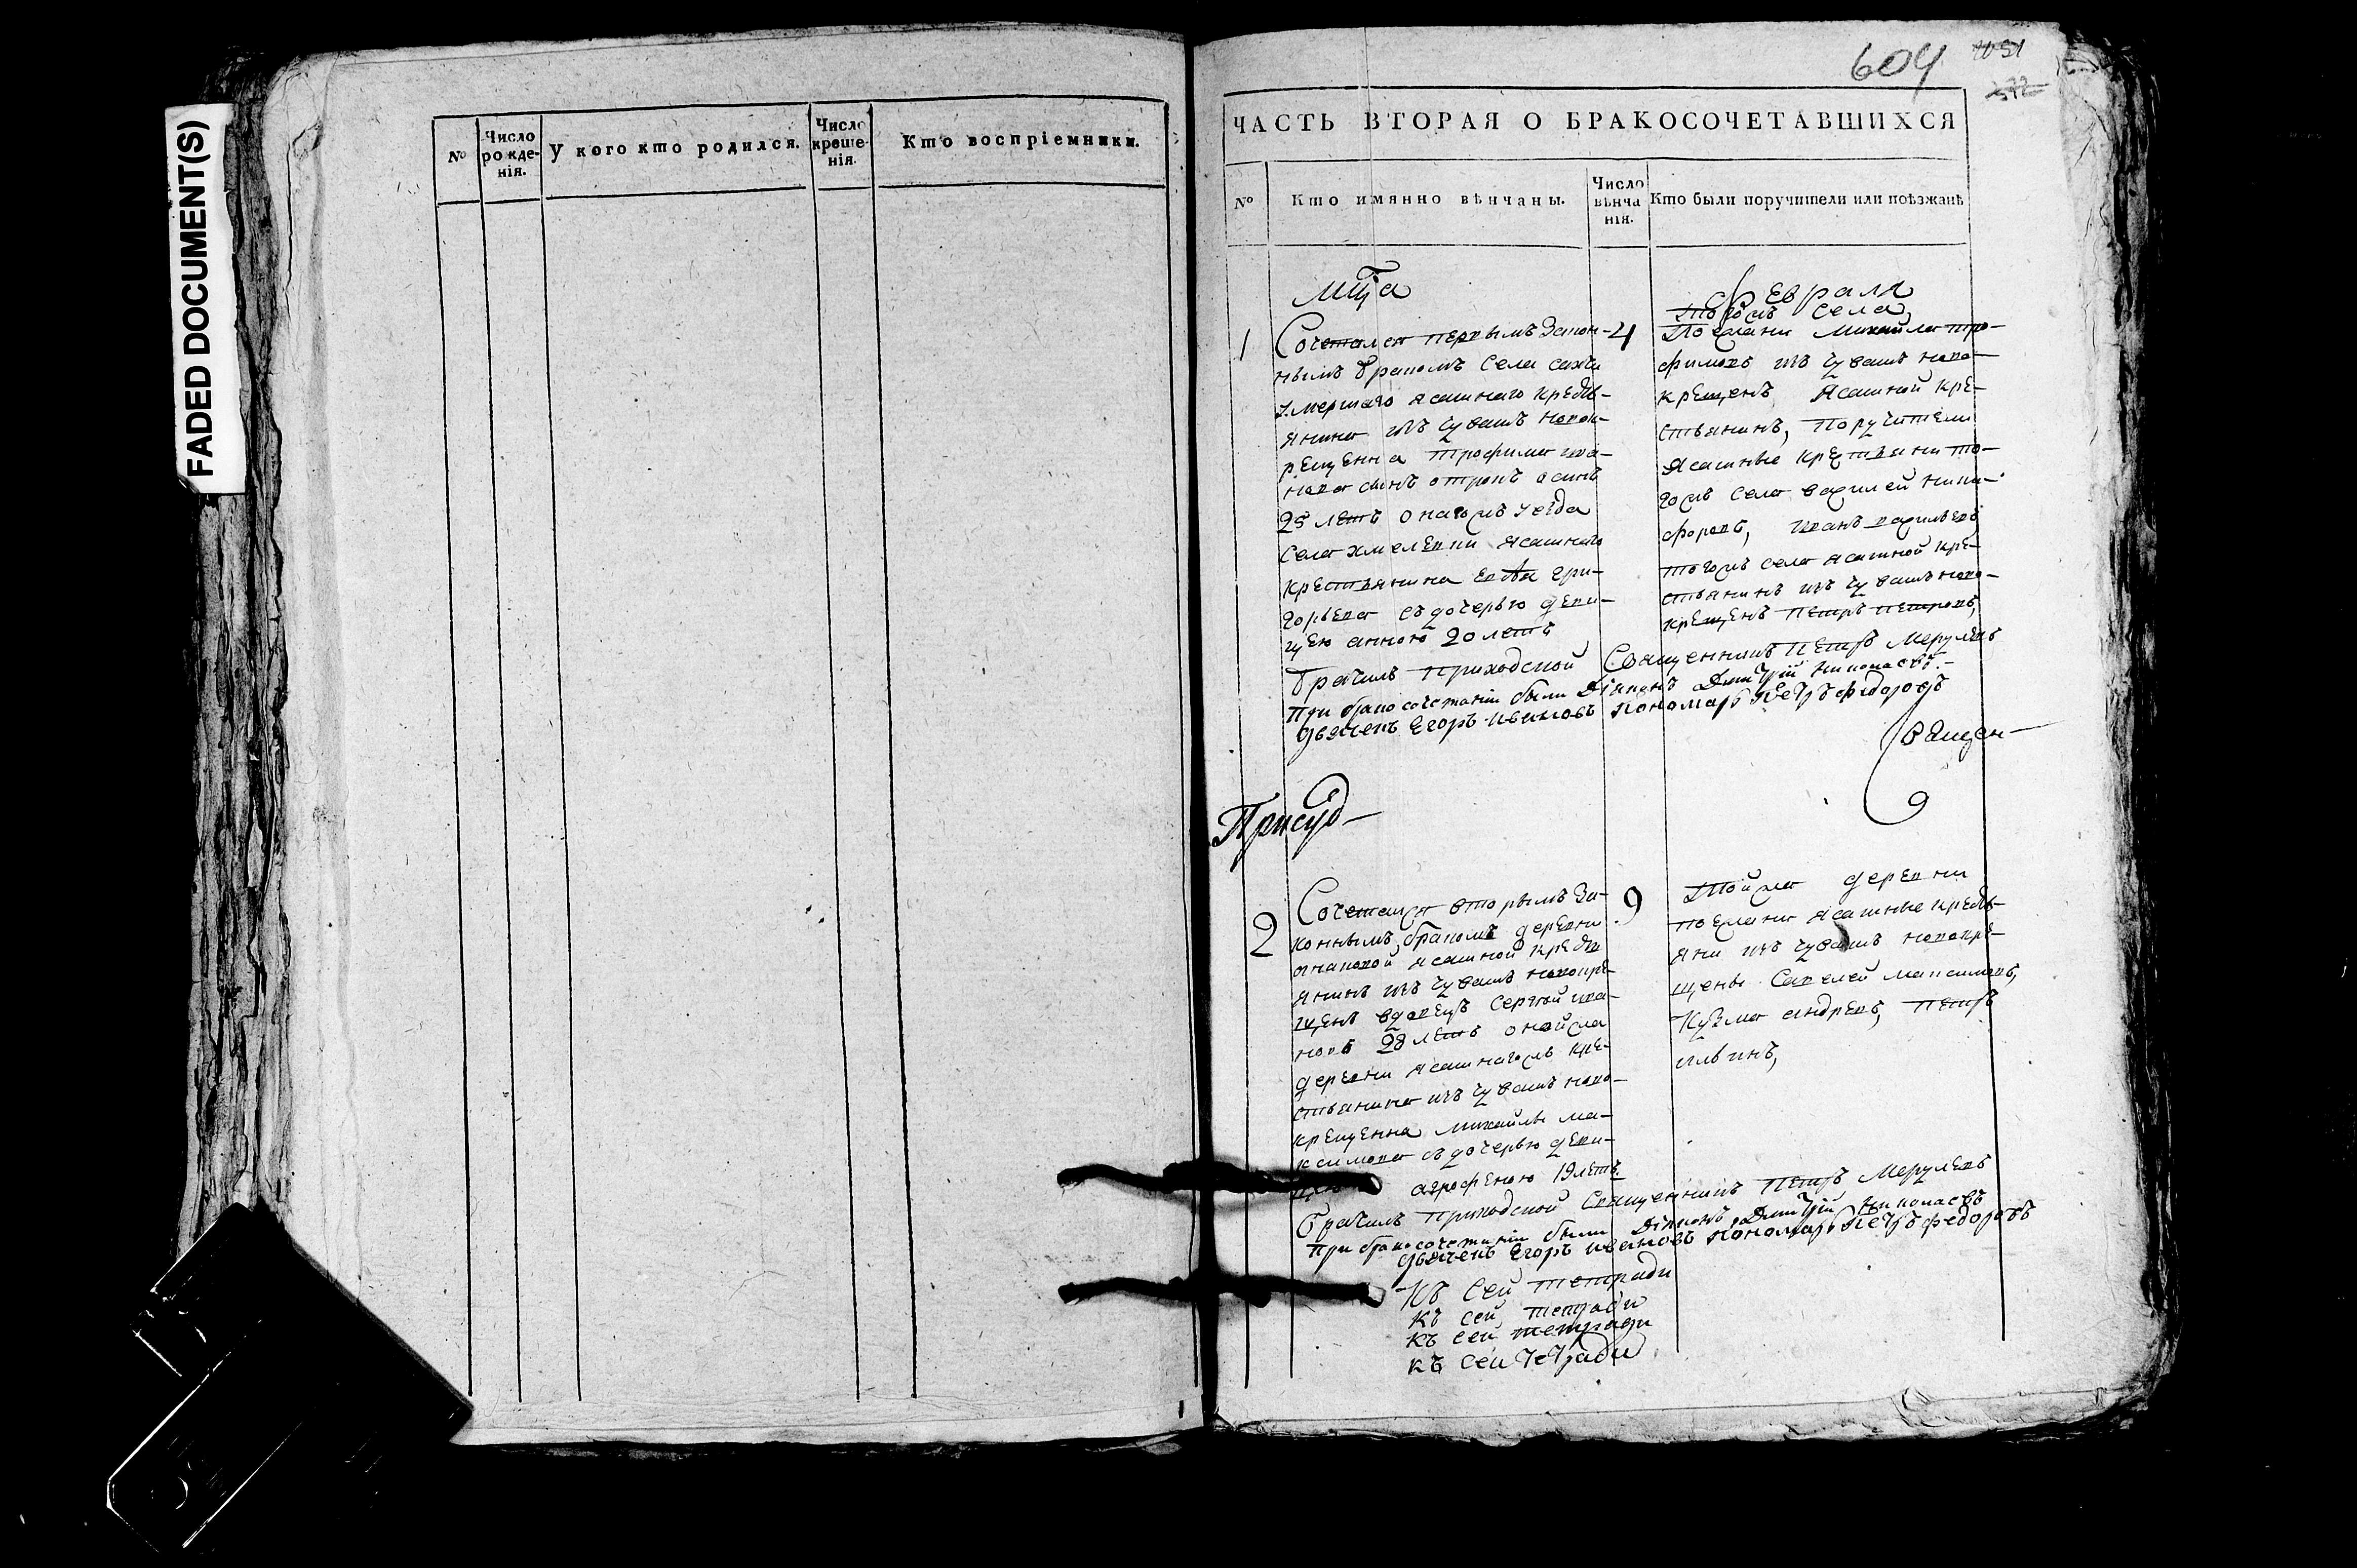 FADED DOCUMENT(S)
№
Число рожденія.
У кого кто родился.
Число крещенія.
Кто воспріемники.
604
1051
572
ЧАСТЬ ВТОРАЯ О БРАКОСОЧЕТАВШИХСЯ
№
Кто имянно вѣнчаны.
Число вѣнчанія.
Кто были поручители или поѣзжанѣ
Мца
Февраля
1
Сочетался первымъ закон-
нымъ бракомъ села
умершаго ясашнаго крестъ-
янина изъ чувашъ новок-
рещенна трофима ива-
нова сынъ отрокъ
25 летъ онагожъ уезда
села хмелевки ясашнаго
крестьянина гри-
горьева съ дочерью деви-
цею анною 20 летъ
4
тогожъ села
поезжани Михайла тро-
фимовъ изъ чувашъ ново-
крещенъ ясашной кре-
стьянинъ, поручители
ясашные крестьяни то-
гожъ села василей ники-
форовъ, иванъ васильевъ
тогожъ села ясашной кре-
стьянинъ изъ чувашъ ново-
крещенъ петръ петровъ,
Брачилъ приходской Священникъ петръ Меркулевъ
При бракосочетаніи были Діяконъ Дмитрій Николаевъ.
дьячекъ Егоръ Ивановъ пономарь Петръ федоровъ
Священ-
Присуд-
2
Сочетался вторымъ за-
коннымъ бракомъ деревни
ясашной крестъ
янинъ изъ чувашъ новокре-
щенъ вдовецъ Сергей ива-
новъ 28 летъ онойжа
деревни ясашнагожъ кре-
стьянина изъ чувашъ ново-
крещенна михайлы ма-
ксимова съ дочерью деви-
цею агрофеною 19 летъ
9
Тойжа деревни
поезжани ясашные крестъ-
яни изъ чувашъ новокре-
щены Савелей максимовъ,
Кузма андревъ, петръ
ильинъ,
Брачилъ приходской Священникъ петръ Меркулевъ
При бракосочетаніи были Діяконъ Дмитрій Николаевъ
дьячекъ Егоръ Ивановъ пономарь Петръ федоровъ
Къ сей тетради
къ сей тетради
къ сей тетради
къ сей тетради